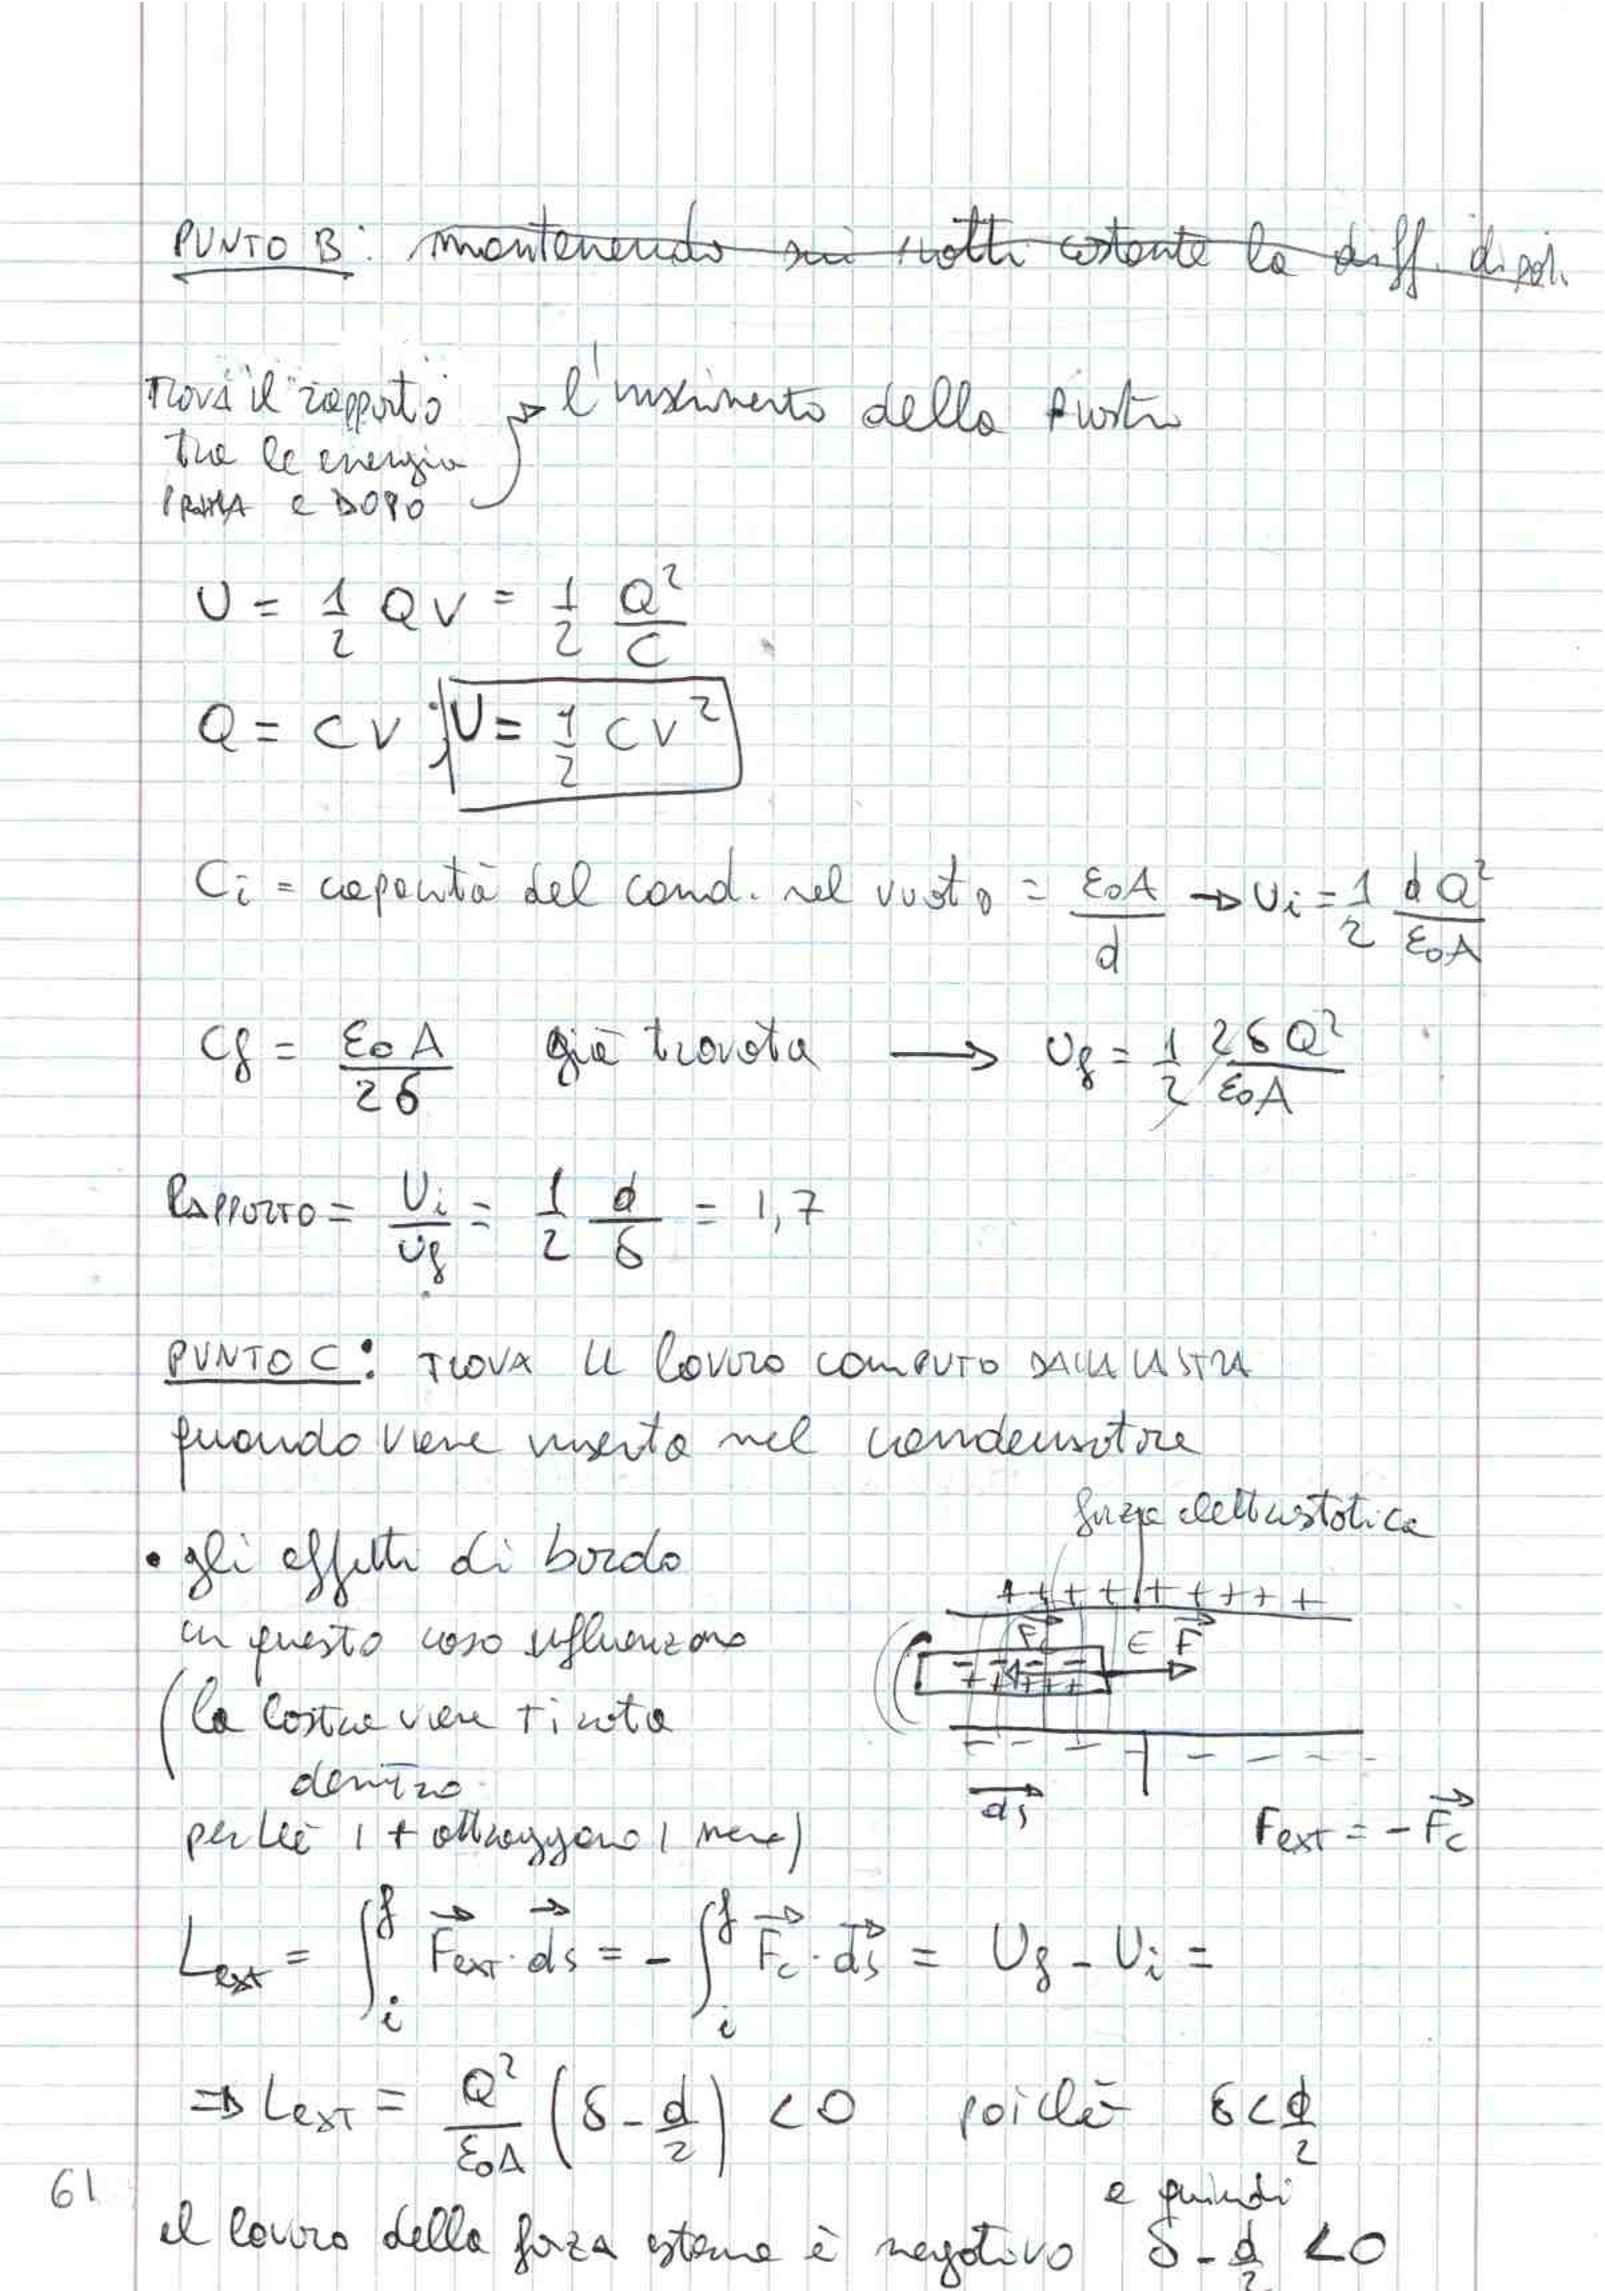 PUNTO B: mantenendo sui piatti costante la diff. di pot.
TROVA il rapporto
tra le energia
PRIMA e DOPO → l'inserimento della piastra
U = 1/2 QV = 1/2 Q²/C
Q = CV ; U = 1/2 CV²
Ci = capacità del cond. nel vuoto = ε₀A/d → Ui = 1/2 dQ²/ε₀A
Cf = ε₀A/2δ già trovata → Uf = 1/2 2δQ²/ε₀A
RAPPORTO = Ui/Uf = 1/2 d/δ = 1,7
PUNTO C: TROVA il lavoro COMPIUTO DALLA LASTRA
quando viene inserita nel condensatore
forza elettrostatica
• gli effetti di bordo
in questo caso influenzano
(la lastra viene tirata
dentro
perché i + attraggono i meno)
+ + + + + + + + + +
Fc E F
- - - - -
+ + + + +
- - - - - - - -
ds
Fext = - Fc
Lext = ∫_i^f Fext · ds = - ∫_i^f Fc · ds = Uf - Ui =
⇒ Lext = Q²/ε₀A (δ - d/2) < 0 poiché δ < d/2
e quindi
il lavoro della forza esterna è negativo δ - d/2 < 0
61